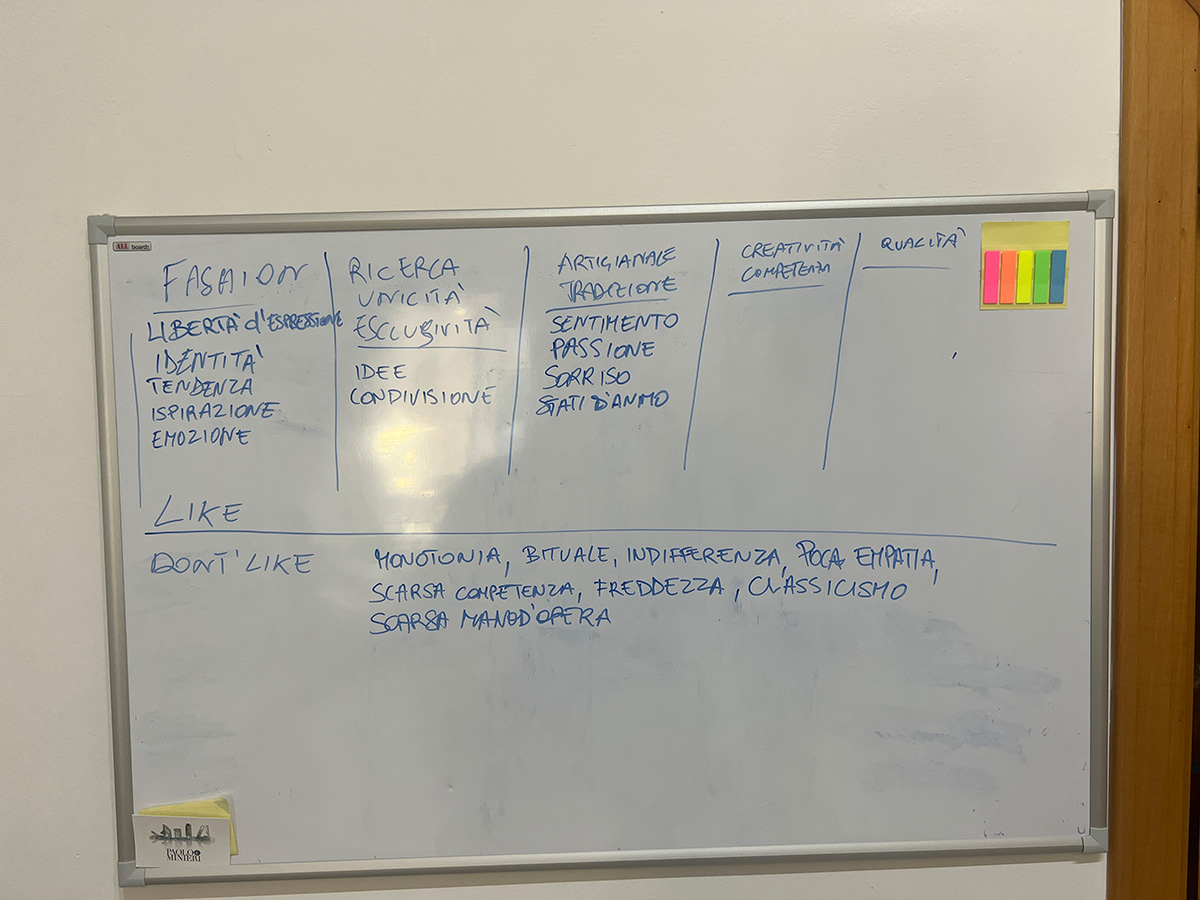 ALL boards
FASHION
LIBERTÀ d'ESPRESSIONE
IDENTITÀ
TENDENZA
ISPIRAZIONE
EMOZIONE
RICERCA
UNICITÀ
ESCLUSIVITÀ
IDEE
CONDIVISIONE
ARTIGIANALE
TRADIZIONE
SENTIMENTO
PASSIONE
SORRISO
STATI D'ANIMO
CREATIVITÀ
COMPETENZA
QUALITÀ
LIKE
DONT' LIKE
MONOTONIA, BITUALE, INDIFFERENZA, POCA EMPATIA,
SCARSA COMPETENZA, FREDDEZZA, CLASSICISMO
SCARSA MANOD'OPERA
PAOLO
MINIERI